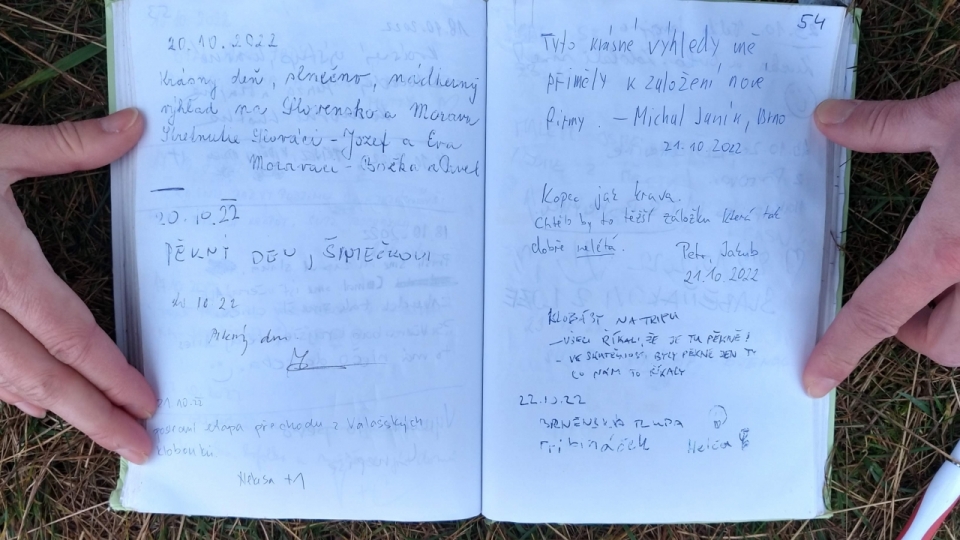 20.10.2022
Krásny deň, slnečno, nádherný
výhľad na Slovensko a Moravu
Stretnutie Slováci - Jozef a Eva
Moravaci - Božka a Pavel
20.10.22
PĚKNÝ DEN, ŠIMEČKOVI
10 22
Pěkný den
21.10.22
etapa přechodu z Valašských
Klobouků
+1
54
Tyto krásné výhledy mě
přiměly k založení nové
firmy. - Michal Janík, Brno
21.10.2022
Kopec jak kráva.
Chtělo by to těžší záložku která tak
dobře nelétá.
Petr, Jakub
21.10.2022
NA TRIPU
- VŠICI ŘÍKALI, ŽE JE TU PĚKNĚ!
- VE SKUTEČNOSTI BYLY PĚKNÉ JEN TY
CO NÁM TO ŘÍKALY
22.10.22
BRNĚNSKÁ TLUPA